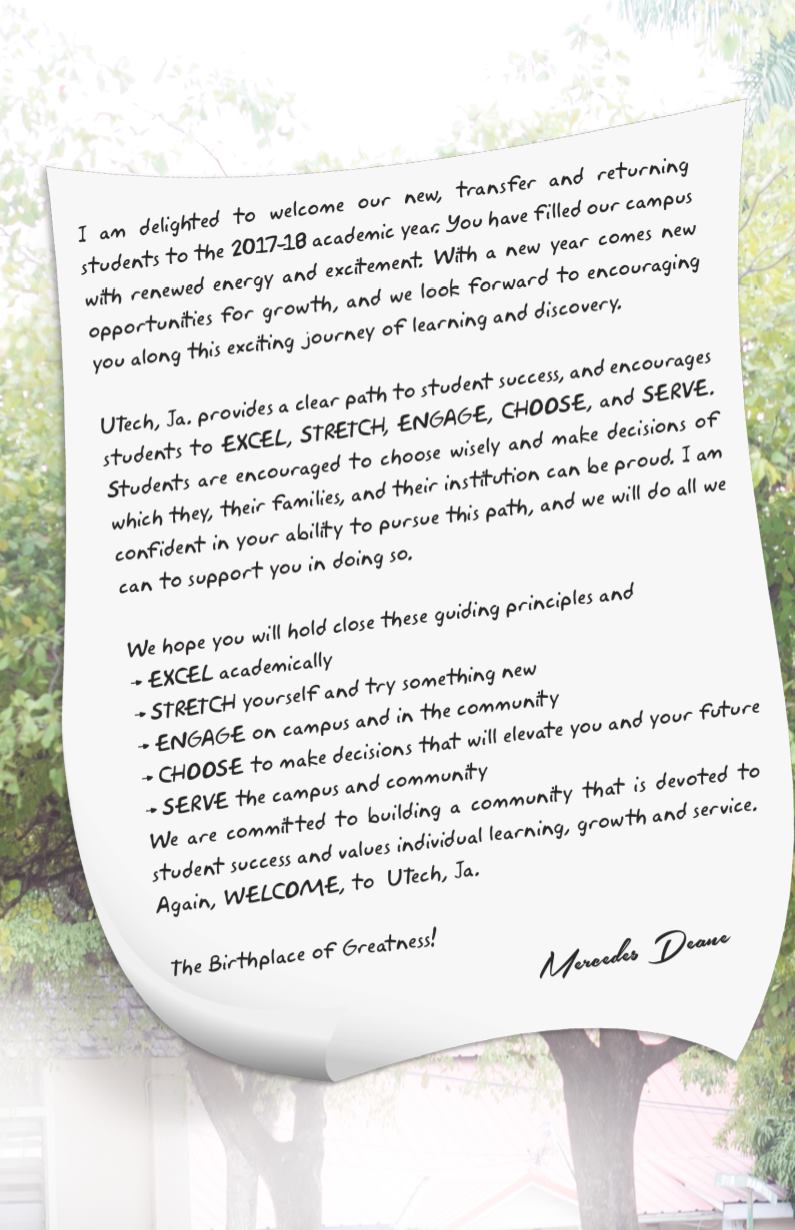 I am delighted to welcome our new, transfer and returning
students to the 2017-18 academic year. You have filled our campus
with renewed energy and excitement. With a new year comes new
opportunities for growth, and we look forward to encouraging
you along this exciting journey of learning and discovery.
UTech, Ja. provides a clear path to student success, and encourages
students to EXCEL, STRETCH, ENGAGE, CHOOSE, and SERVE.
Students are encouraged to choose wisely and make decisions of
which they, their families, and their institution can be proud. I am
confident in your ability to pursue this path, and we will do all we
can to support you in doing so.
We hope you will hold close these guiding principles and
→ EXCEL academically
→ STRETCH yourself and try something new
→ ENGAGE on campus and in the community
→ CHOOSE to make decisions that will elevate you and your future
→ SERVE the campus and community
We are committed to building a community that is devoted to
student success and values individual learning, growth and service.
Again, WELCOME, to UTech, Ja.
The Birthplace of Greatness!
Mercedes Deane